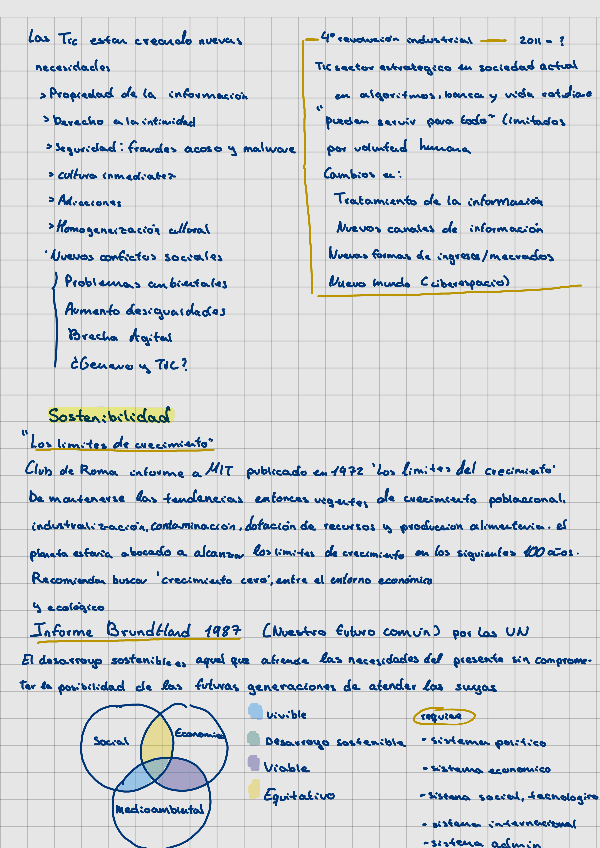 Las Tic estan creando nuevas
necesidades
> Propiedad de la información
> Derecho a la intimidad
> Seguridad: fraudes acoso y malware
> cultura inmediatez
> Adicciones
> Homogeneización cultural
· Nuevos conflictos sociales
Problemas ambientales
Aumento desigualdades
Brecha digital
¿Genero y TIC?
4º revolución industrial — 2011 - ?
Tic sector estrategico en sociedad actual
en algoritmos, banca y vida cotidiana
"pueden servir para todo" limitados
por voluntad humana
Cambios en:
Tratamiento de la información
Nuevos canales de información
Nuevas formas de ingresos/mercados
Nuevo mundo (ciberespacio)
Sostenibilidad
"Los limites de crecimiento"
Club de Roma informe a MIT publicado en 1972 'Los limites del crecimiento'
De mantenerse las tendencias entonces vigentes de crecimiento poblacional,
industralización, contaminación, dotación de recursos y produccion alimenteria. el
planeta estaria abocado a alcanzar los limites de crecimiento en los siguientes 100 años.
Recomiendan buscar 'crecimiento cero', entre el entorno económico
y ecológico
Informe Brundtland 1987 (Nuestro futuro común) por las UN
El desarroyo sostenible es aquel que atiende las necesidades del presente sin comprome-
ter la posibilidad de las futuras generaciones de atender las suyas
Social
Economico
Medioambiental
Vivible
Desarroyo sostenible
Viable
Equitativo
requiere
- sistema politico
- sistema economico
- sistema social, tecnologico
- sistema internacional
- sistema admin